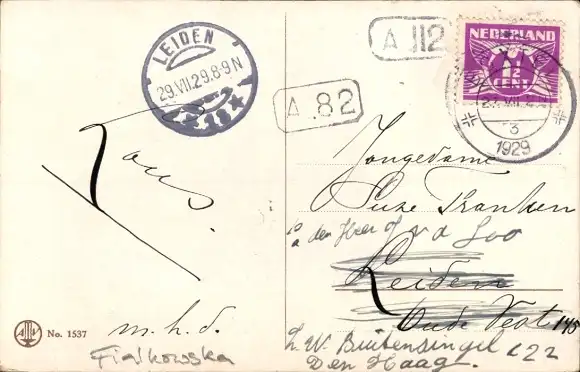 LEIDEN
29.VII.29.8-9 N
A 112
NEDERLAND
1½
CENT
3
1929
A 82
Jongedame
Suze Franken
p/a den Heer J v d Loo
Leiden
Oude Vest 145
Z. W. Buitensingel 122
Den Haag.
m.h.d.
Fialkowska
No. 1537